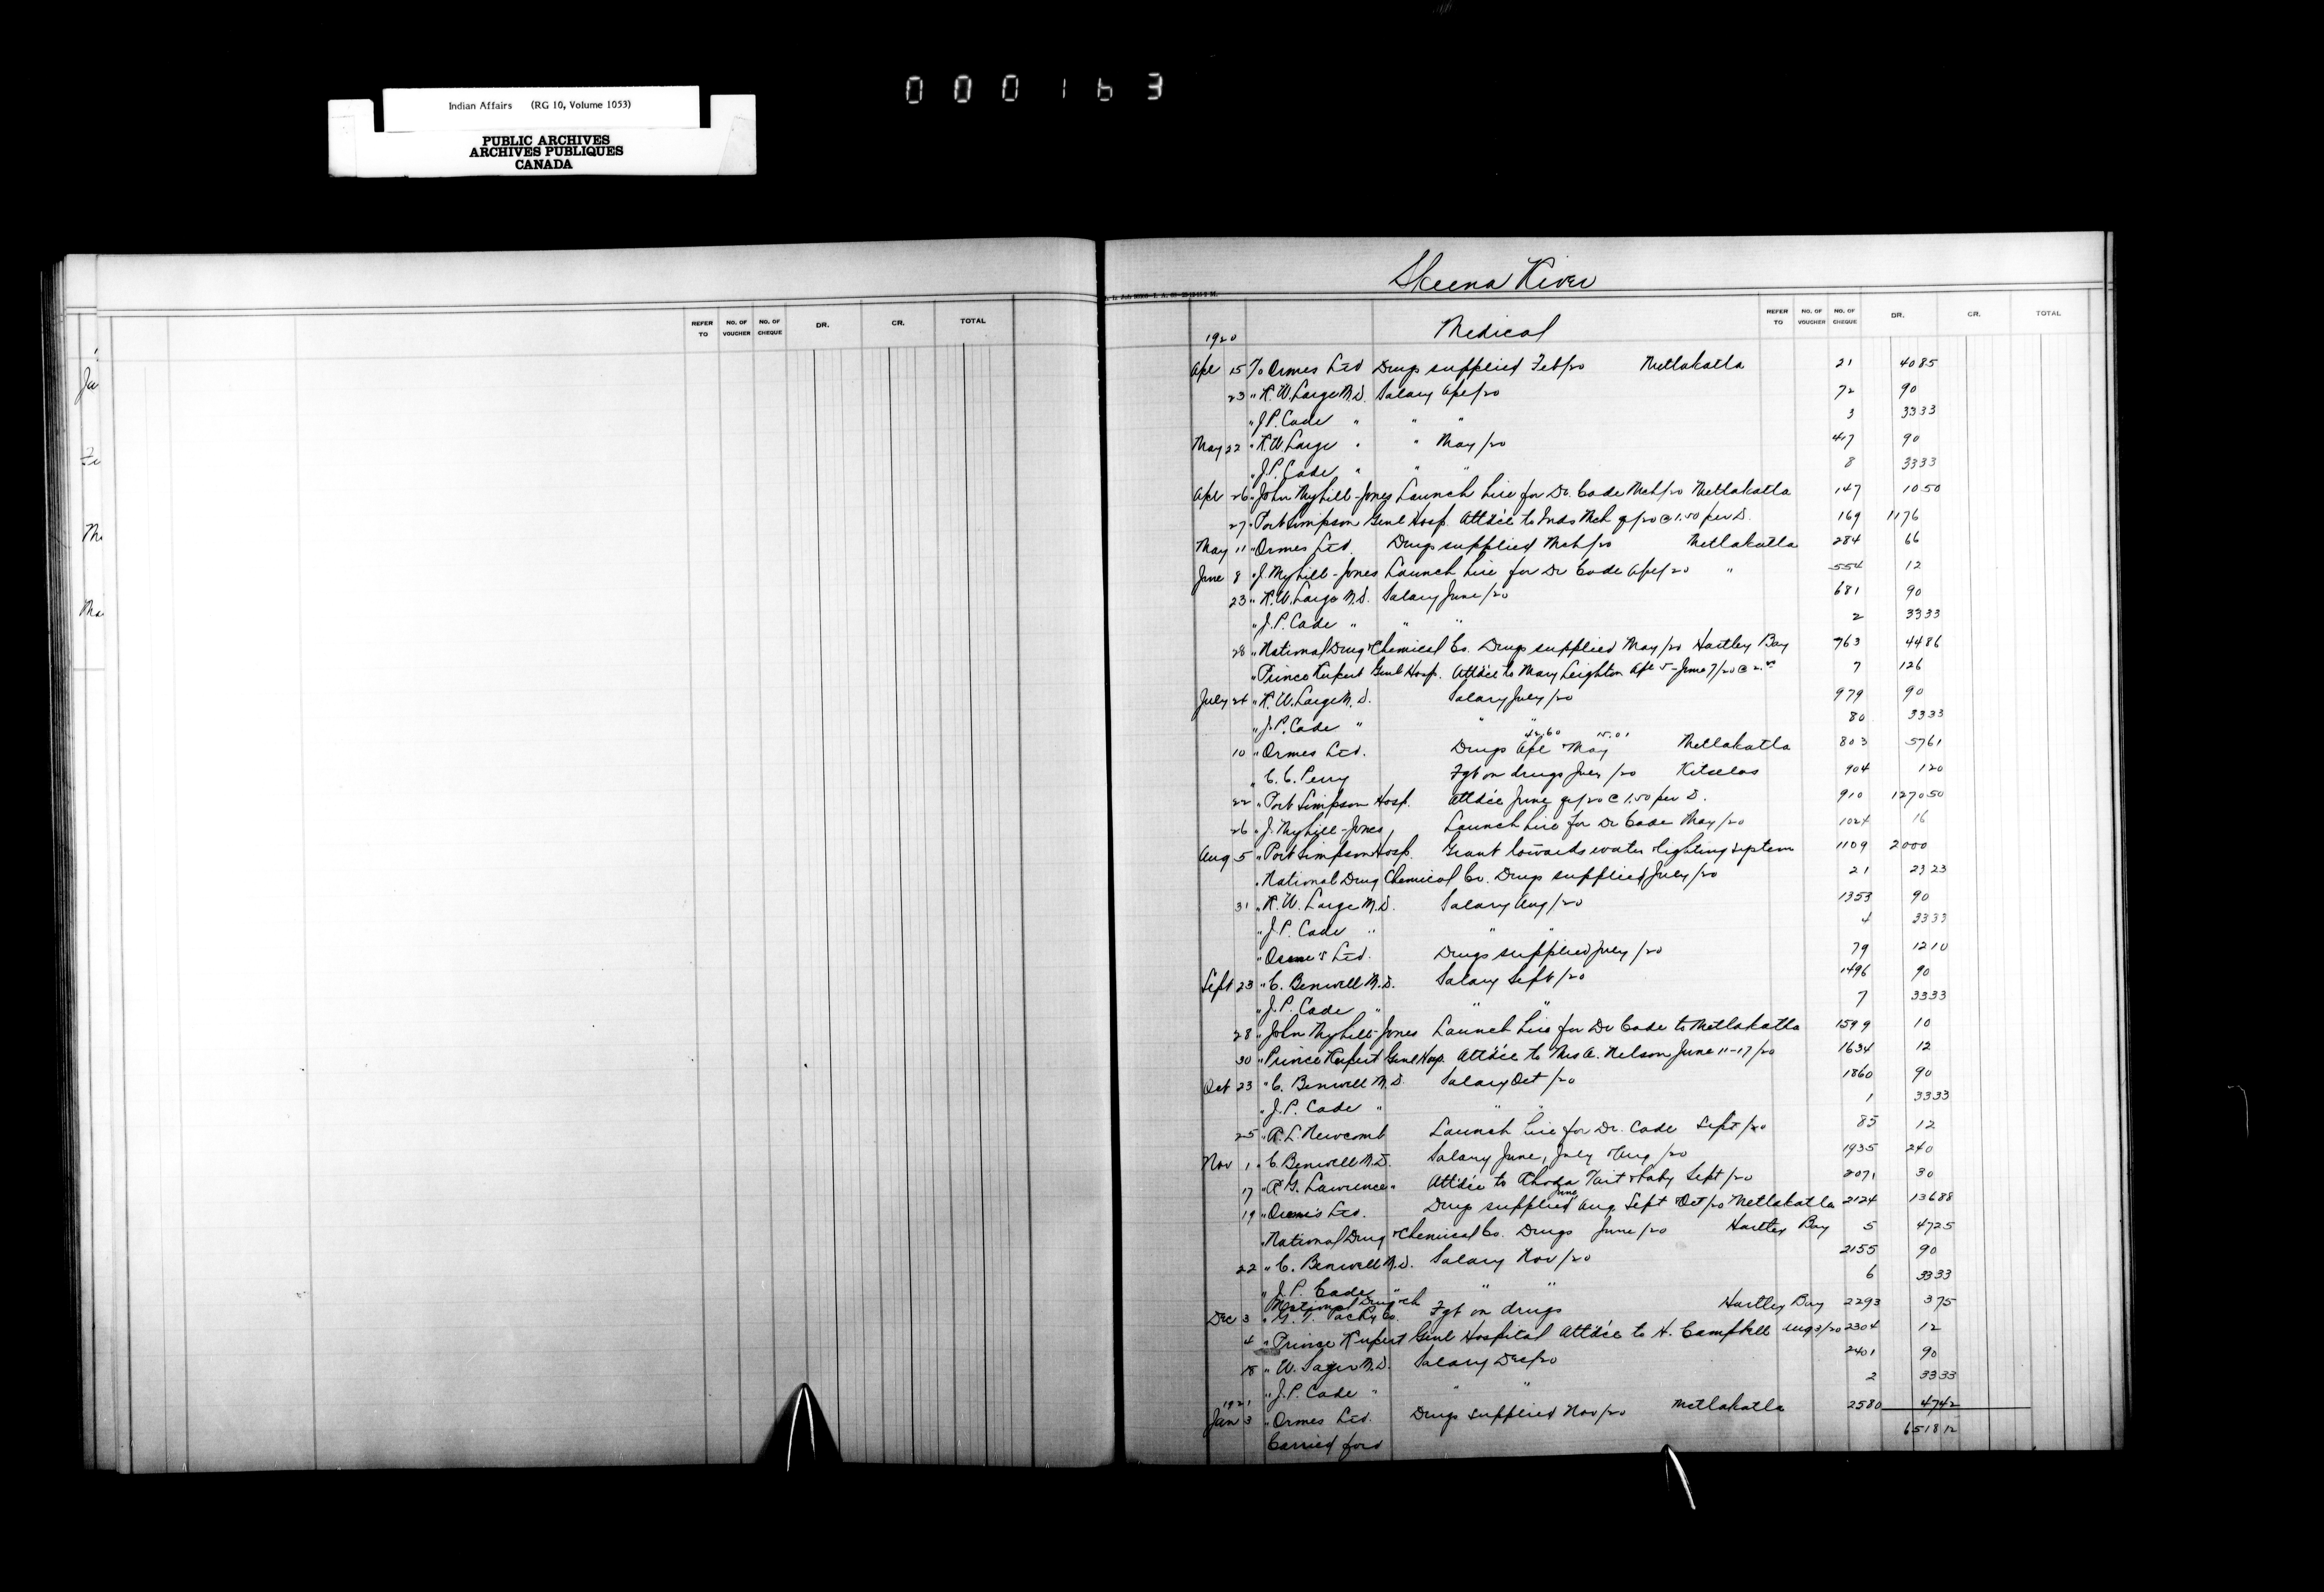 000163
Indian Affairs (RG 10, Volume 1053)
PUBLIC ARCHIVES
ARCHIVES PUBLIQUES
CANADA
Skeena River
REFER TO NO. OF VOUCHER NO. OF CHEQUE DR. CR. TOTAL
1920 Medical REFER TO NO. OF VOUCHER NO. OF CHEQUE DR. CR. TOTAL
Apl 15 To Ormes Ltd Drugs supplied Feb/20 Metlakatla 21 40 85
23 " R.W. Large M.D. Salary Apl/20 72 90
" J.P. Cade " " " 3 33 33
May 22 " R.W. Large " " May/20 417 90
" J.P. Cade " " " 8 33 33
Apl 26 " John Myhill-Jones Launch hire for Dr. Cade Mch/20 Metlakatla 147 10 50
27 " Port Simpson Genl Hosp. Attd'ce to Inds Mch qr/20 @ 1.50 per D. 169 1176
May 11 " Ormes Ltd. Drugs supplied Mch/20 Metlakatla 284 66
June 8 " J. Myhill-Jones Launch hire for Dr Cade Apl/20 " 554 12
23 " R.W. Large M.D. Salary June/20 681 90
" J.P. Cade " " " 2 33 33
28 " National Drug & Chemical Co. Drugs supplied May/20 Hartley Bay 763 44 86
" Prince Rupert Genl Hosp. Attd'ce to Mary Leighton Apl 5 - June 7/20 @ 2.00 7 126
July 24 " R.W. Large M.D. Salary July/20 979 90
" J.P. Cade " " " 80 33 33
42.60 15.01
10 " Ormes Ltd. Drugs Apl & May Metlakatla 803 57 61
" C.C. Perry Fgt on drugs July/20 Kitselas 904 1 20
22 " Port Simpson Hosp. Attd'ce June qr/20 @ 1.50 per D. 910 1270 50
26 " J. Myhill-Jones, Launch hire for Dr Cade May/20 1024 16
Aug 5 " Port Simpson Hosp. Grant towards water & lighting system 1109 2000
" National Drug Chemical Co. Drugs supplied July/20 21 23 23
31 " R.W. Large M.D. Salary Aug/20 1353 90
" J.P. Cade " " " 4 33 33
" Orme's Ltd. Drugs supplied July/20 79 12 10
Sept 23 " C. Benwell M.D. Salary Sept/20 1496 90
" J.P. Cade " " " 7 33 33
28 " John Myhill-Jones Launch hire for Dr Cade to Metlakatla 1599 10
30 " Prince Rupert Genl Hosp. Attd'ce to Mrs A. Nelson June 11-17/20 1634 12
Oct 23 " C. Benwell M.D. Salary Oct/20 1860 90
" J.P. Cade " " " 1 33 33
25 " R.L. Newcomb Launch hire for Dr. Cade Sept/20 85 12
Nov 1 " C. Benwell M.D. Salary June, July & Aug/20 1935 240
17 " R.G. Lawrence " Attd'ce to Rhoda Tait & baby Sept/20 2071 30
June
19 " Orme's Ltd. Drugs supplied Aug. Sept & Oct/20 Metlakatla 2124 136 88
" National Drug & Chemical Co. Drugs June/20 Hartley Bay 5 47 25
22 " C. Benwell M.D. Salary Nov/20 2155 90
" J.P. Cade " " " 6 33 33
National Drug & Ch
Dec 3 " G.T. Packy Co. Fgt on drugs Hartley Bay 2293 3 75
4 " Prince Rupert Genl Hospital Attd'ce to H. Campbell Aug 3/20 2304 12
18 " W. Sager M.D. Salary Dec/20 2401 90
" J.P. Cade " " " 2 33 33
1921
Jan 3 " Ormes Ltd. Drugs supplied Nov/20 Metlakatla 2580 47 42
Carried ford 6518 12